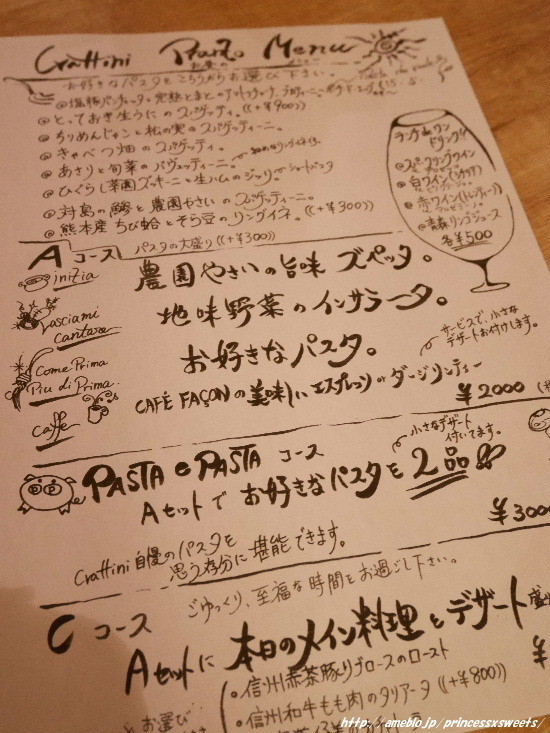 Crattini Pranzo Menu
お好きなパスタをこちらからお選び下さい。
とっておき生うにのスパゲッティ。((+¥900))
ちりめんじゃこと松の実のスパゲッティーニ。
きゃべつ畑のスパゲッティ。
あさりと旬菜のパヴェッティーニ。
ひぐらし菜園ズッキーニと生ハムの ショートパスタ
対島の鰯と農園やさいのスパゲッティーニ。
熊本産ちび蛤とそら豆のリングイネ。((+¥300))
パスタの大盛り((+¥300))
ランチdeワン
ドリンク!!
スパークリングワイン
白ワイン(シチリア)
赤ワイン
青森リンゴジュース
各¥500
Aコース
inizia
農園やさいの旨味 ズペッタ。
Lasciami
Cantare
地味野菜のインサラータ。
Come Prima
Piu di Prima.
お好きなパスタ。
サービスで、小さな
デザートお付けします。
caffe
CAFÉ FAÇONの美味しいエスプレッソorダージリンティー
¥2000
PASTA e PASTA コース
小さなデザート
付いてます。
Aセットでお好きなパスタを2品
¥3000
Crattini自慢のパスタを
思う存分に堪能できます。
ごゆっくり、至福な時間をお過ごし下さい。
C コース
Aセットに 本日のメイン料理とデザート
¥
信州赤茶豚 ロースのロースト
信州和牛もも肉のタリアータ((+¥800))
お選び
http://ameblo.jp/princessxsweets/